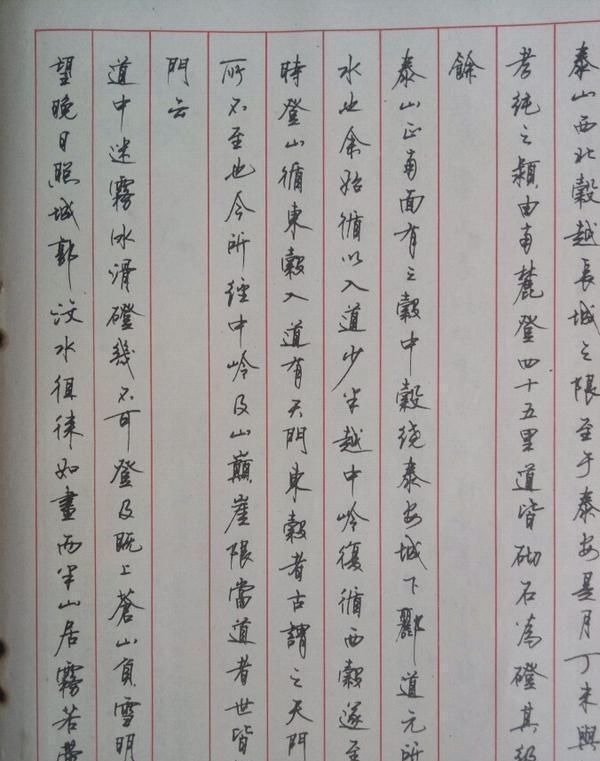 泰山西北穀越長城之限至于泰安是月丁未與
孝純之潁由南麓登四十五里道皆砌石為磴其級
餘
泰山正南面有三穀中穀繞泰安城下酈道元所
水也余始循以入道少半越中岭復循西穀遂至
時登山循東穀入道有天門東穀者古謂之天門
所不至也今所經中岭及山巔崖限當道者世皆
門云
道中迷霧冰滑磴幾不可登及既上蒼山負雪明
望晚日照城郭汶水徂徠如畫而半山居霧若帶